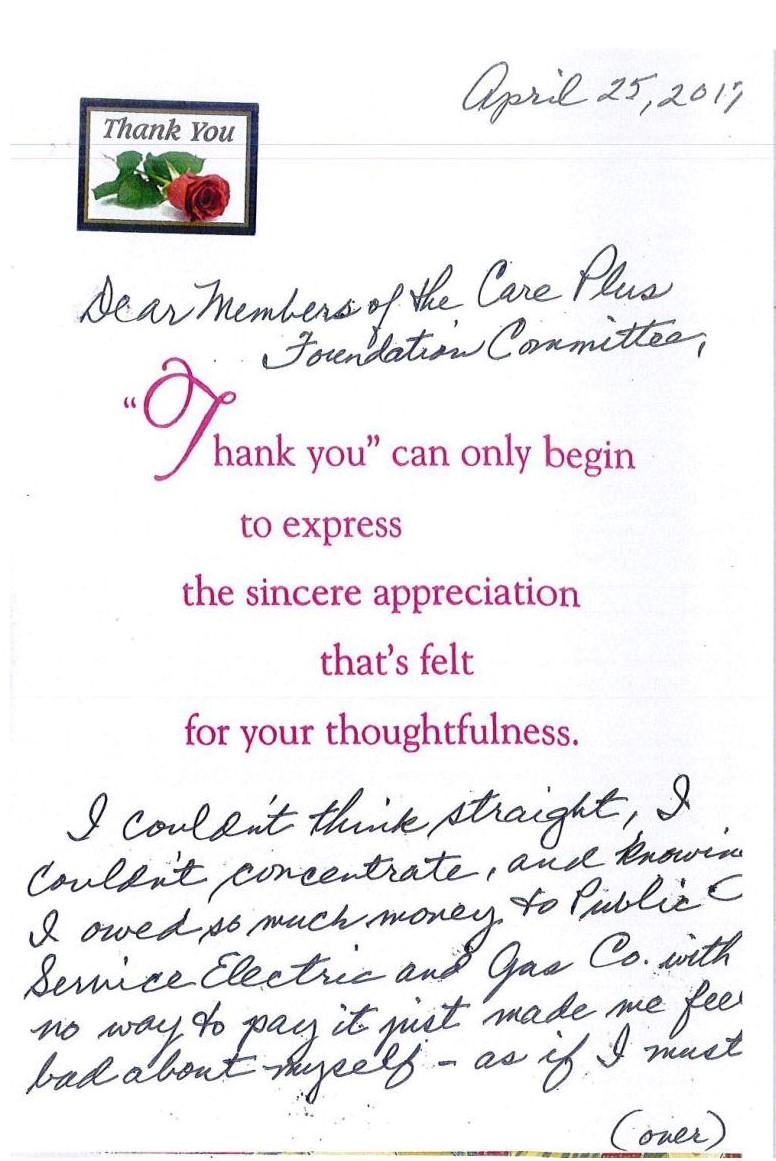 April 25, 2017
Thank You
Dear Members of the Care Plus
Foundation Committee,
"Thank you" can only begin
to express
the sincere appreciation
that's felt
for your thoughtfulness.
I couldn't think straight, I
couldn't concentrate, and knowin
I owed so much money to Public
Service Electric and Gas Co. with
no way to pay it just made me fee
bad about myself - as if I must
(over)